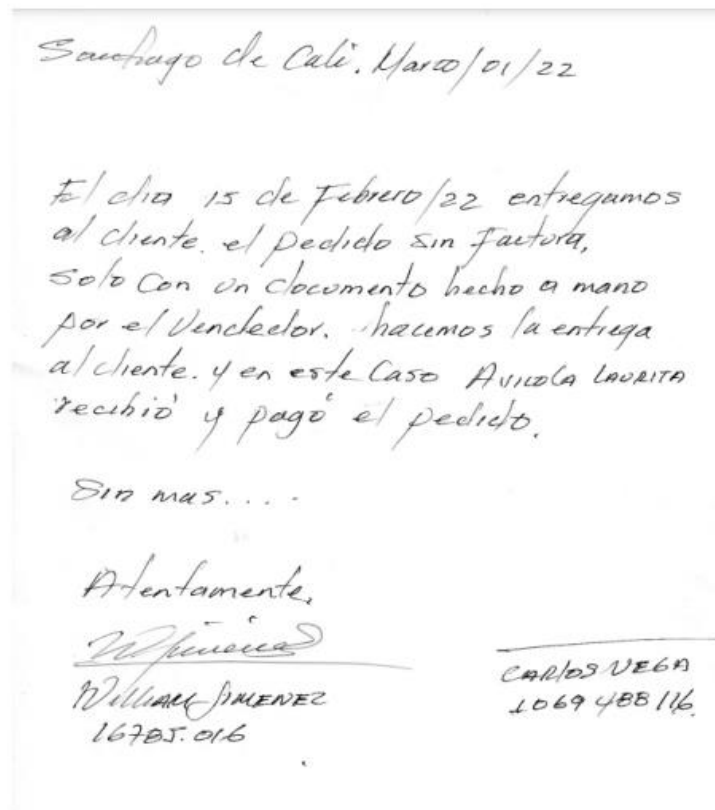 Santiago de Cali. Marzo/01/22
El dia 15 de Febrero/22 entregamos
al cliente. el pedido sin Factura,
solo con un documento hecho a mano
por el Vendedor. hacemos la entrega
al cliente. y en este Caso AVICOLA LAURITA
recibió y pagó el pedido.
Sin mas....
Atentamente,
WJimenez
WILLIAM JIMENEZ
16785.016
CARLOS VEGA
1069 488 116.